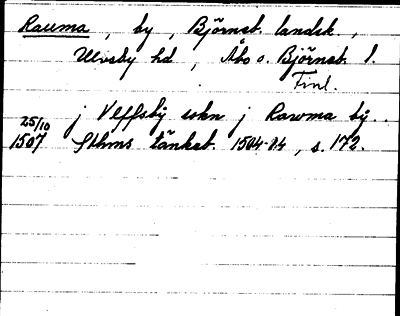 Rauma, by, Björneb. landsk.,
Ulvsby hd, Åbo o. Björneb. l.
Finl.
25/10 j Vlffsby sokn j Rawma by..
1507 Sthms tänkeb. 1504-14, s. 172.